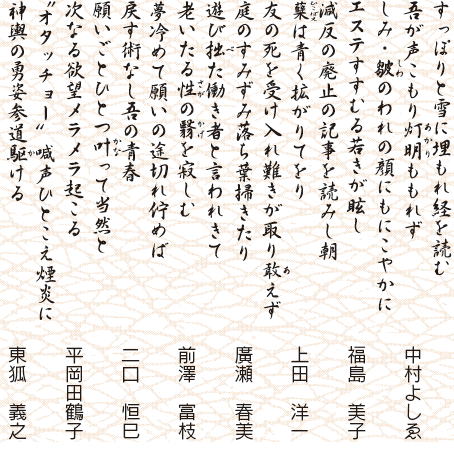 すっぽりと雪に埋もれ経を読む
吾が声こもり灯明ももれず
中村よしゑ
しみ・皺のわれの顔にもにこやかに
エステすすむる若きが眩し
福島 美子
減反の廃止の記事を読みし朝
蘖は青く拡がりてをり
上田 洋一
友の死を受け入れ難きが取り敢えず
庭のすみずみ落ち葉掃きたり
廣瀬 春美
遊び拙た働き者と言われきて
老いたる性の翳を寂しむ
前澤 富枝
夢冷めて願いの途切れ佇めば
戻す術なし吾の青春
二口 恒巳
願いごとひとつ叶って当然と
次なる欲望メラメラ起こる
平岡田鶴子
〝オタッチョー〟喊声ひとこえ煙炎に
神輿の勇姿参道駆ける
東狐 義之